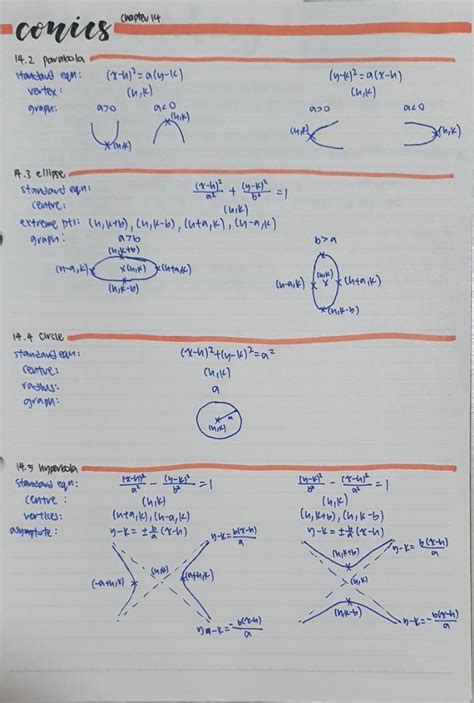 conics chapter 14
14.2 parabola
standard eqn: (x-h)²=a(y-k) (y-k)²=a(x-h)
vertex: (h,k) (h,k)
graph: a>0 a<0 a>0 a<0
(h,k) (h,k) (h,k) (h,k)
14.3 ellipse
standard eqn: (x-h)²/a² + (y-k)²/b² = 1
centre: (h,k)
extreme pts: (h,k+b), (h,k-b), (h+a,k), (h-a,k)
graph: a>b b>a
(h,k+b)
(h-a,k) (h,k) (h+a,k) (h-a,k) (h,k) (h+a,k)
(h,k-b) (h,k-b)
14.4 circle
standard eqn: (x-h)²+(y-k)²=a²
centre: (h,k)
radius: a
graph:
a
(h,k)
14.5 hyperbola
standard eqn: (x-h)²/a² - (y-k)²/b² = 1 (y-k)²/b² - (x-h)²/a² = 1
centre: (h,k) (h,k)
vertices: (h+a,k), (h-a,k) (h,k+b), (h,k-b)
asymptote: y-k = ± b/a (x-h) y-k = ± b/a (x-h)
y-k = b(x-h)/a y-k = b(x-h)/a
(h,k) (h,k+b)
(-a+h,k) (a+h,k) (h,k)
(h,k-b)
y-k = -b(x-h)/a y-k = -b(x-h)/a